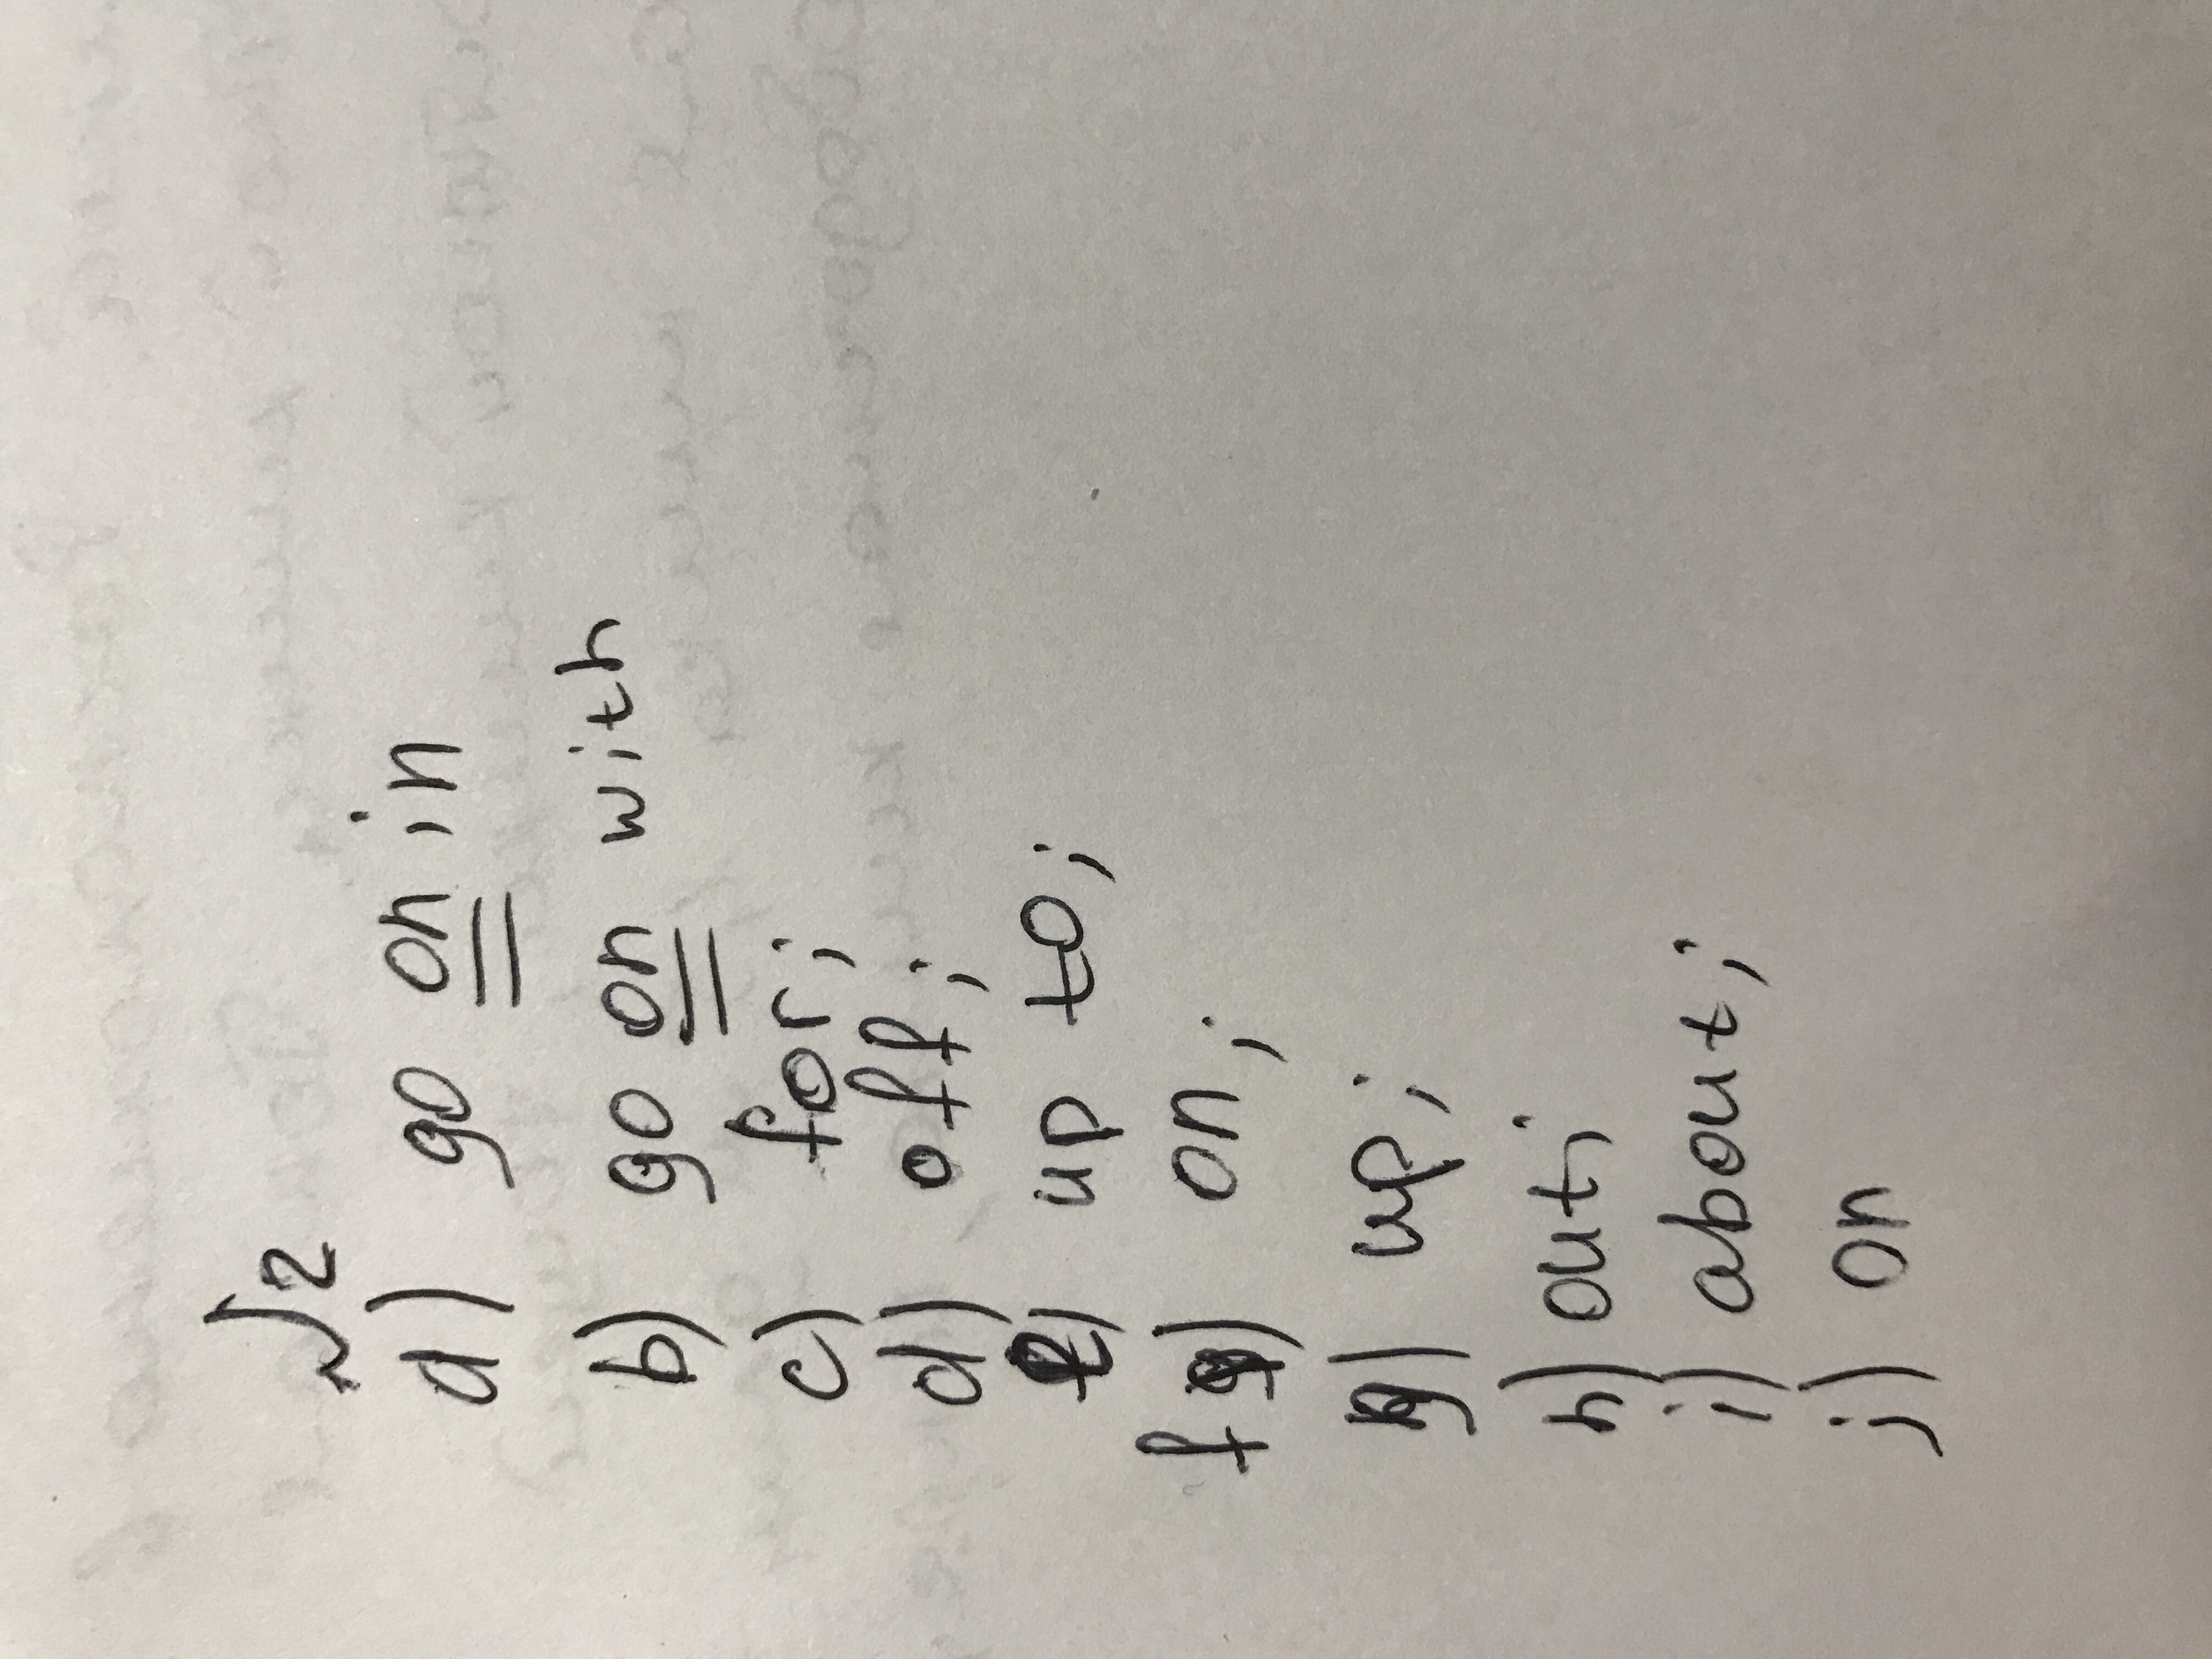 №2
a) go on in
b) go on with
c) for;
d) off;
e) up to;
f) on;
g) up;
h) out;
i) about;
j) on